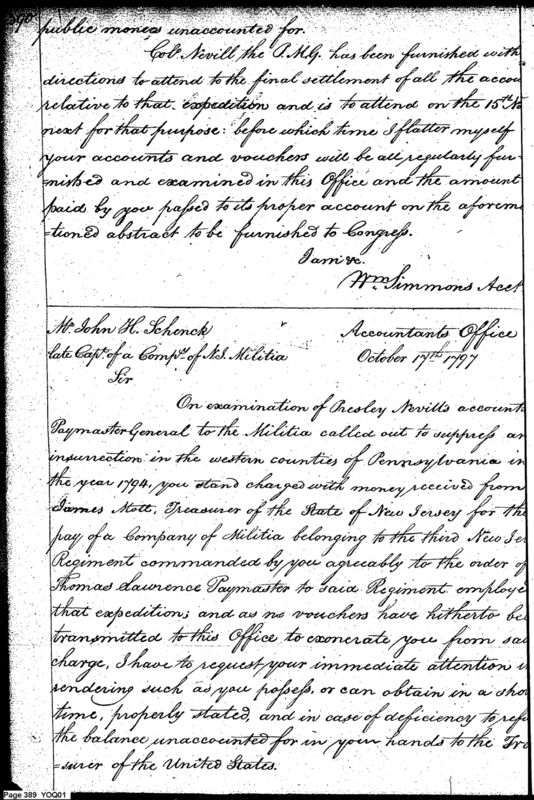 390
public moneys unaccounted for.
Colo. Nevill the P.M.G. has been furnished with
directions to attend to the final settlement of all the accou
relative to that expedition and is to attend on the 15th
next for that purpose: before which time I flatter myself
your accounts and vouchers will be all regularly fur-
nished and examined in this Office and the amount
paid by you passed to its proper account on the aforem
=tioned abstract to be furnished to Congress.
I am &c.
Wm. Simmons Acct
Mr. John H. Schenck
Accountants Office
late Capt. of a Compy. of N.J. Militia
October 17th 1797
Sir
On examination of Presley Nevill's account
Paymaster General to the Militia called out to suppress an
insurrection in the western counties of Pennsylvania in
the year 1794, you stand charged with money received from
James Mott, Treasurer of the State of New Jersey for the
pay of a Company of Militia belonging to the third New Jer
Regiment commanded by you agreably to the order of
Thomas Lawrence Paymaster to said Regiment employe
that expedition; and as no vouchers have hitherto be
transmitted to this Office to exonerate you from sai
charge, I have to request your immediate attention i
rendering such as you possess, or can obtain in a sho
time, properly stated, and in case of deficiency to refu
the balance unaccounted for in your hands to the Tre
=surer of the United States.
Page 389 YOQ01